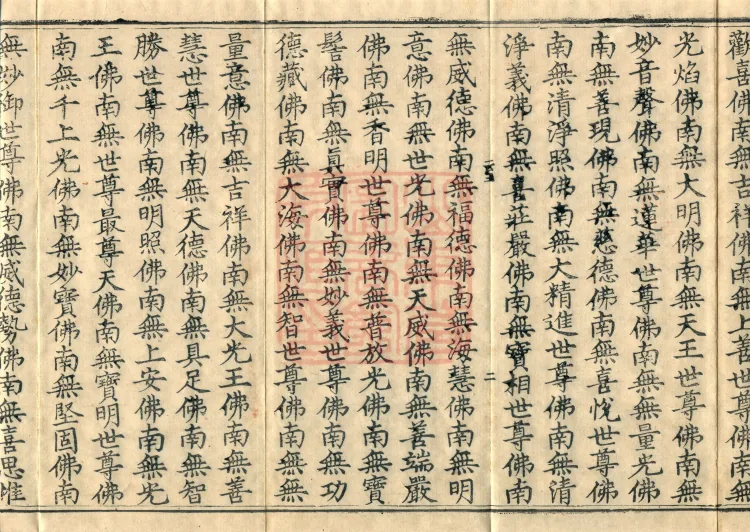 歡喜佛南無吉祥佛南無上善世尊佛南無
光焰佛南無大明佛南無天王世尊佛南無
妙音聲佛南無蓮華世尊佛南無無量光佛
南無善現佛南無慈德佛南無喜悅世尊佛
南無清淨照佛南無大精進世尊佛南無清
淨義佛南無喜莊嚴佛南無寶相世尊佛南
二
無威德佛南無福德佛南無海慧佛南無明
意佛南無世光佛南無天威佛南無善端嚴
佛南無香明世尊佛南無普放光佛南無寶
髻佛南無真實佛南無妙義世尊佛南無功
德藏佛南無大海佛南無智世尊佛南無無
量意佛南無吉祥佛南無大光王佛南無善
慧世尊佛南無天德佛南無具足佛南無智
勝世尊佛南無明照佛南無上安佛南無光
王佛南無世尊最尊天佛南無寶明世尊佛
南無千上光佛南無妙寶佛南無堅固佛南
無沙御世尊佛南無威德勢佛南無喜思惟